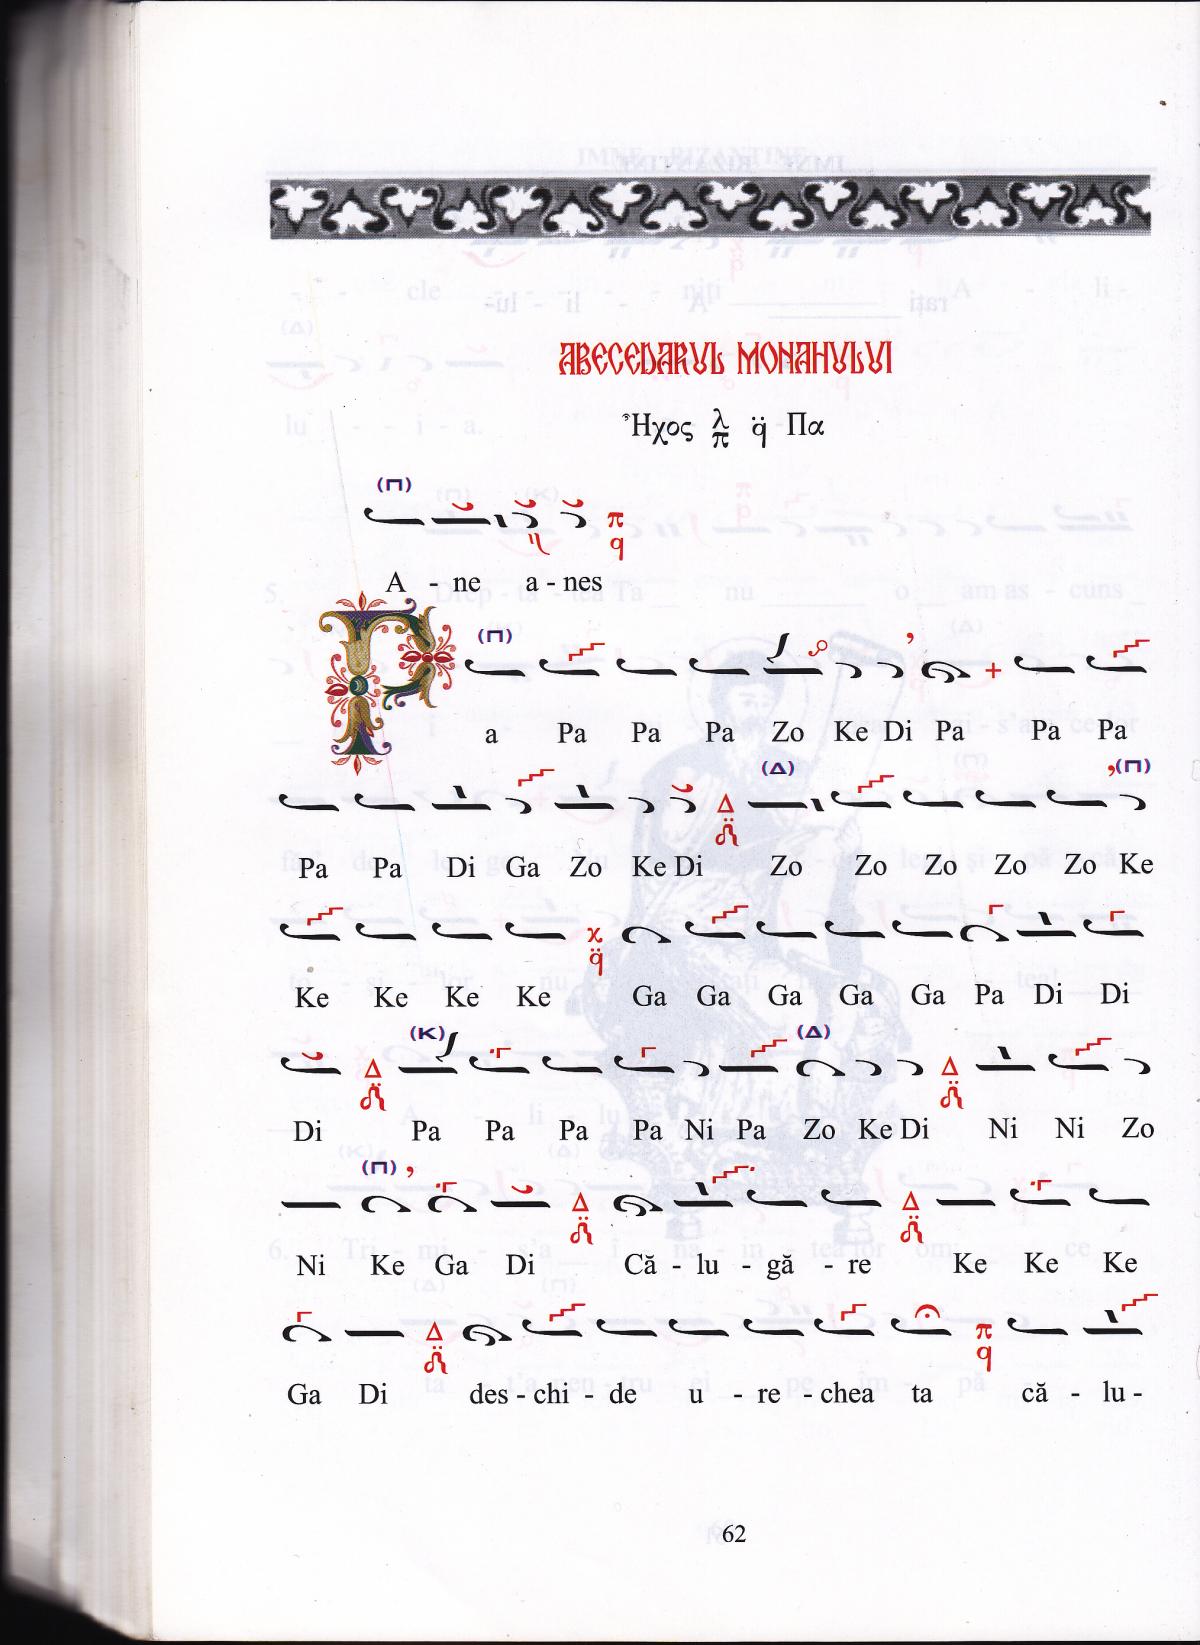 ABECEDARUL MONAHULUI
Ἦχος λ π q̈ Πα
(Π)
A - ne a - nes
(Π)
Pa Pa Pa Pa Zo Ke Di Pa Pa Pa
(Δ) (Π)
Pa Pa Di Ga Zo Ke Di Zo Zo Zo Zo Zo Ke
Ke Ke Ke Ke Ga Ga Ga Ga Ga Pa Di Di
(K) (Δ)
Di Pa Pa Pa Pa Ni Pa Zo Ke Di Ni Ni Zo
(Π)
Ni Ke Ga Di Că - lu - gă - re Ke Ke Ke
Ga Di des - chi - de u - re - chea ta că - lu -
62